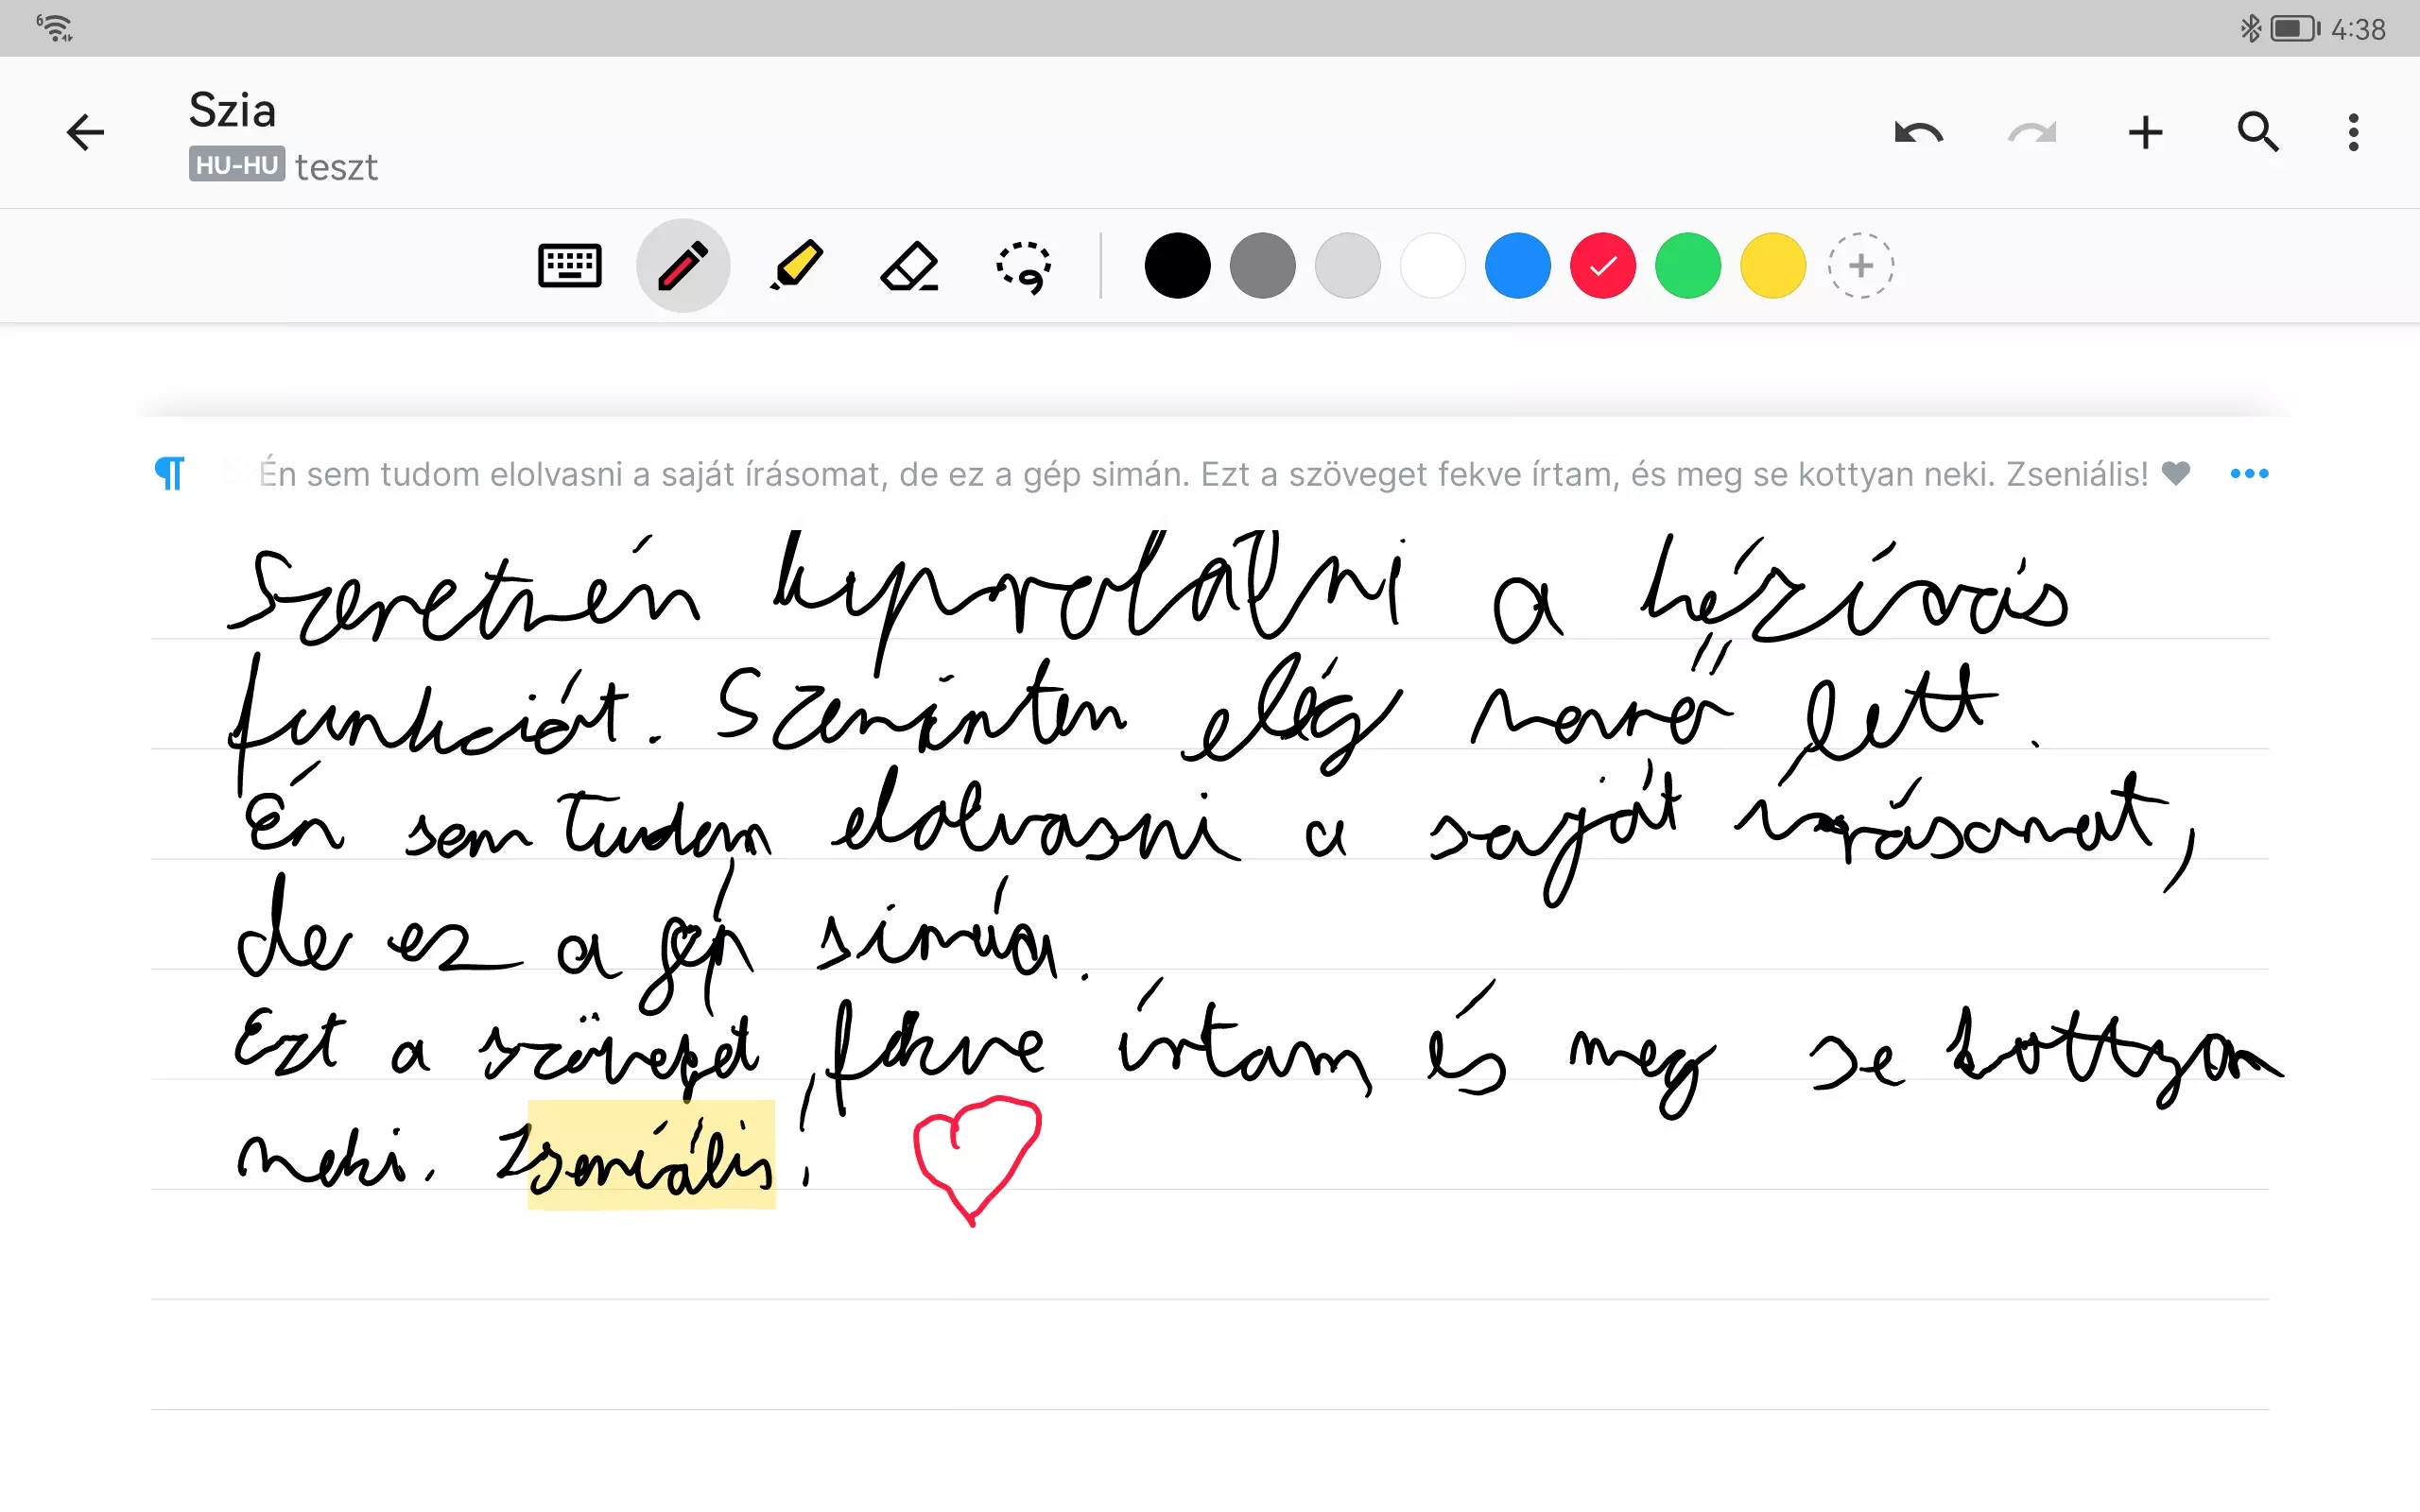 6
4:38
Szia
HU-HU teszt
Én sem tudom elolvasni a saját írásomat, de ez a gép simán. Ezt a szöveget fekve írtam, és meg se kottyan neki. Zseniális! ♥
Szeretném kipróbálni a kézírás
funkciót. Szerintem elég menő lett.
Én sem tudom elolvasni a saját írásomat,
de ez a gép simán.
Ezt a szöveget fekve írtam, és meg se kottyan
neki. Zseniális!